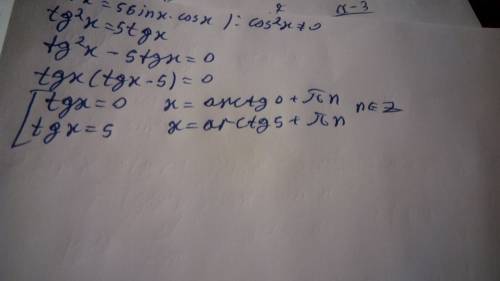 x = 5sinx·cosx ) : cos²x≠0
tg²x = 5tgx
tg²x - 5tgx = 0
tgx(tgx-5) = 0
[ tgx = 0 x = arctg0 + πn n∈Z
tgx = 5 x = arctg5 + πn